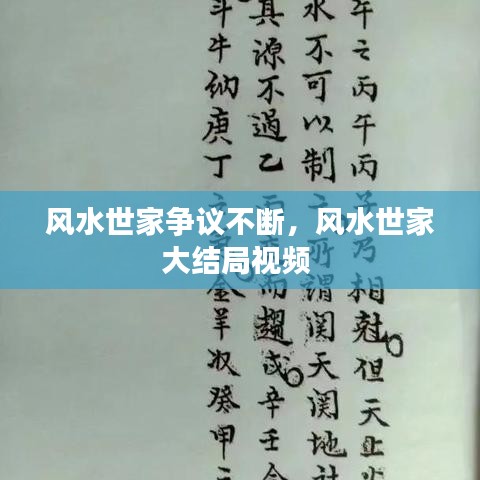 风水世家争议不断，风水世家
大结局视频
午云丙午丙相尅但天止
水不可以制谓関天関地
其源不過乙而趨戌辛壬
斗牛纳庚丁金羊収癸甲